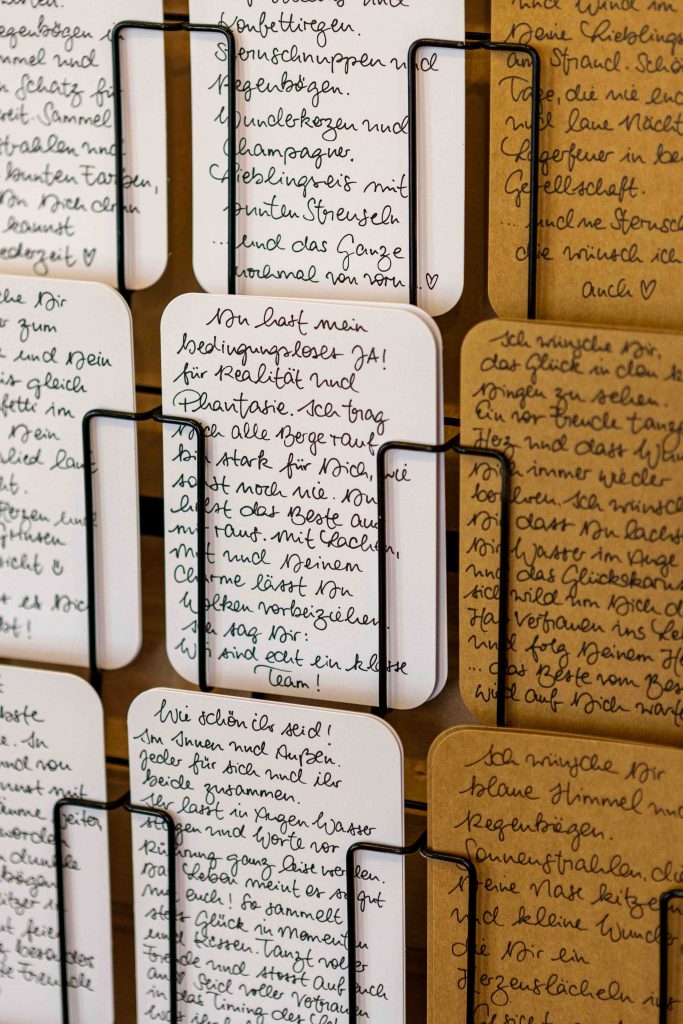 egenbögen
mmel und
n Schatz für
ereit. Sammel
strahlen und
bunten Farben,
Du Dich dran
kannst
ederzeit ♡
und
Konfettiregen.
Sternschnuppen und
Regenbögen.
Wunderkerzen und
Champagner.
Lieblingseis mit
bunten Streuseln
... und das Ganze
nochmal von vorn...♡
und Wind im
Deine Lieblings
am Strand. Schö
Tage, die nie end
und laue Nächt
Lagerfeuer in be
Gesellschaft.
... und ne Sternsch
die wünsch ich
auch ♡
che Dir
er zum
e und Dein
is gleich
fetti im
Dein
lied lau
ht.
Herzen und
sicht
es Dich
bt!
Du hast mein
bedingungsloses JA!
für Realität und
Phantasie. Ich trag
Dich alle Berge rauf
bin stark für Dich, wie
sonst noch nie. Du
holst das Beste aus
mir raus. Mit Lachen,
Mut und Deinem
Charme lässt Du
Wolken vorbeiziehen.
Ich sag Dir:
Wir sind echt ein klasse
Team!
Ich wünsche Dir,
das Glück in den k
Dingen zu sehen.
Ein vor Freude tanze
Herz und dass Wun
Dich immer wieder
berühren. Ich wünsch
Dir dass Du lachst
Dir Wasser im Auge
und das Glückskarus
sich wild um Dich d
Hab Vertrauen ins Le
und folg Deinem He
... das Beste vom Bes
wird auf Dich warte
bste
e. In
und von
unst mit
äume weiter
werden
dunkle
bögen
itzer in
ut feier
besonders
te Freunde
Wie schön ihr seid!
Im Innen und Außen.
Jeder für sich und ihr
beide zusammen.
Ihr lasst in Augen Wasser
steigen und Worte vor
Rührung ganz leise werden.
Das Leben meint es so gut
mit euch! So sammelt
stets Glück in Momenten
und Küssen. Tanzt voller
Freude und stosst auf euch
an♡ Seid voller Vertrauen
in das Timing des
Ich wünsche Dir
blaue Himmel und
Regenbögen.
Sonnenstrahlen, die
Deine Nase kitzeln
und kleine Wunder
die Dir ein
Herzenslächeln ins
Gesicht